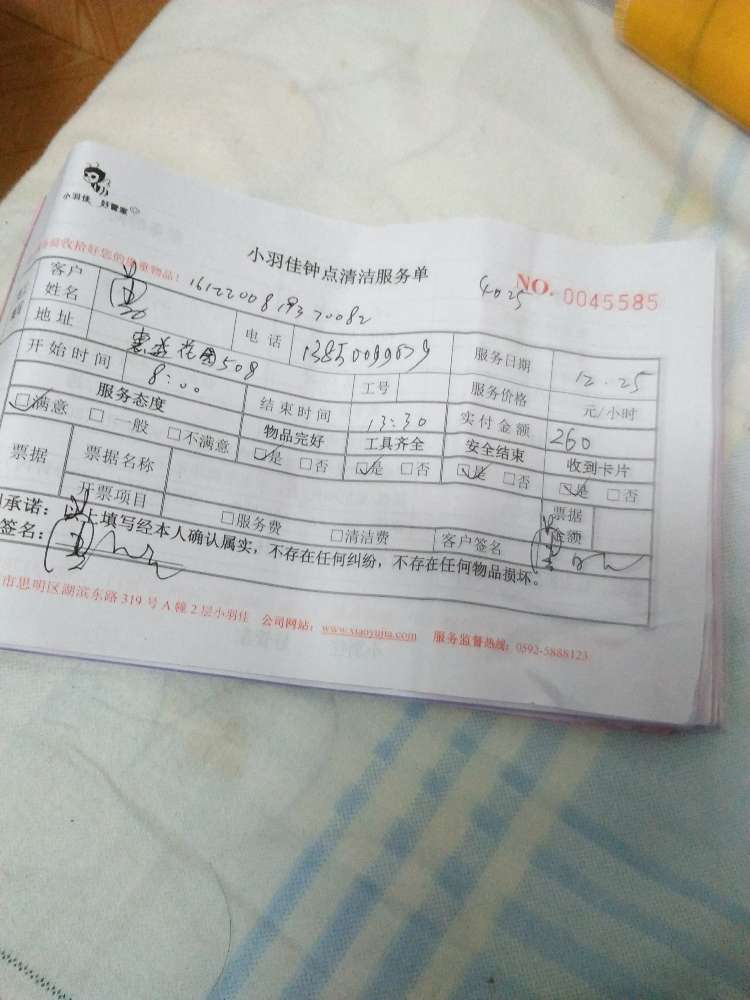 小羽佳 好管家
小羽佳钟点清洁服务单
4025
NO. 0045585
收拾好您的贵重物品!
161220081937 0082
客户姓名
电话 13850099639
服务日期 12.25
地址 花园508
工号
服务价格 元/小时
开始时间 8:00
结束时间 13:30
实付金额 260
服务态度
物品完好
工具齐全
安全结束
收到卡片
☑满意 □一般 □不满意
☑是 □否
☑是 □否
☑是 □否
☑是 □否
票据
票据名称
票据金额
开票项目
□服务费
□清洁费
客户签名
承诺:以上填写经本人确认属实,不存在任何纠纷,不存在任何物品损坏。
签名:
市思明区湖滨东路319号A幢2层小羽佳 公司网站:www.xiaoyujia.com 服务监督热线:0592-5888123